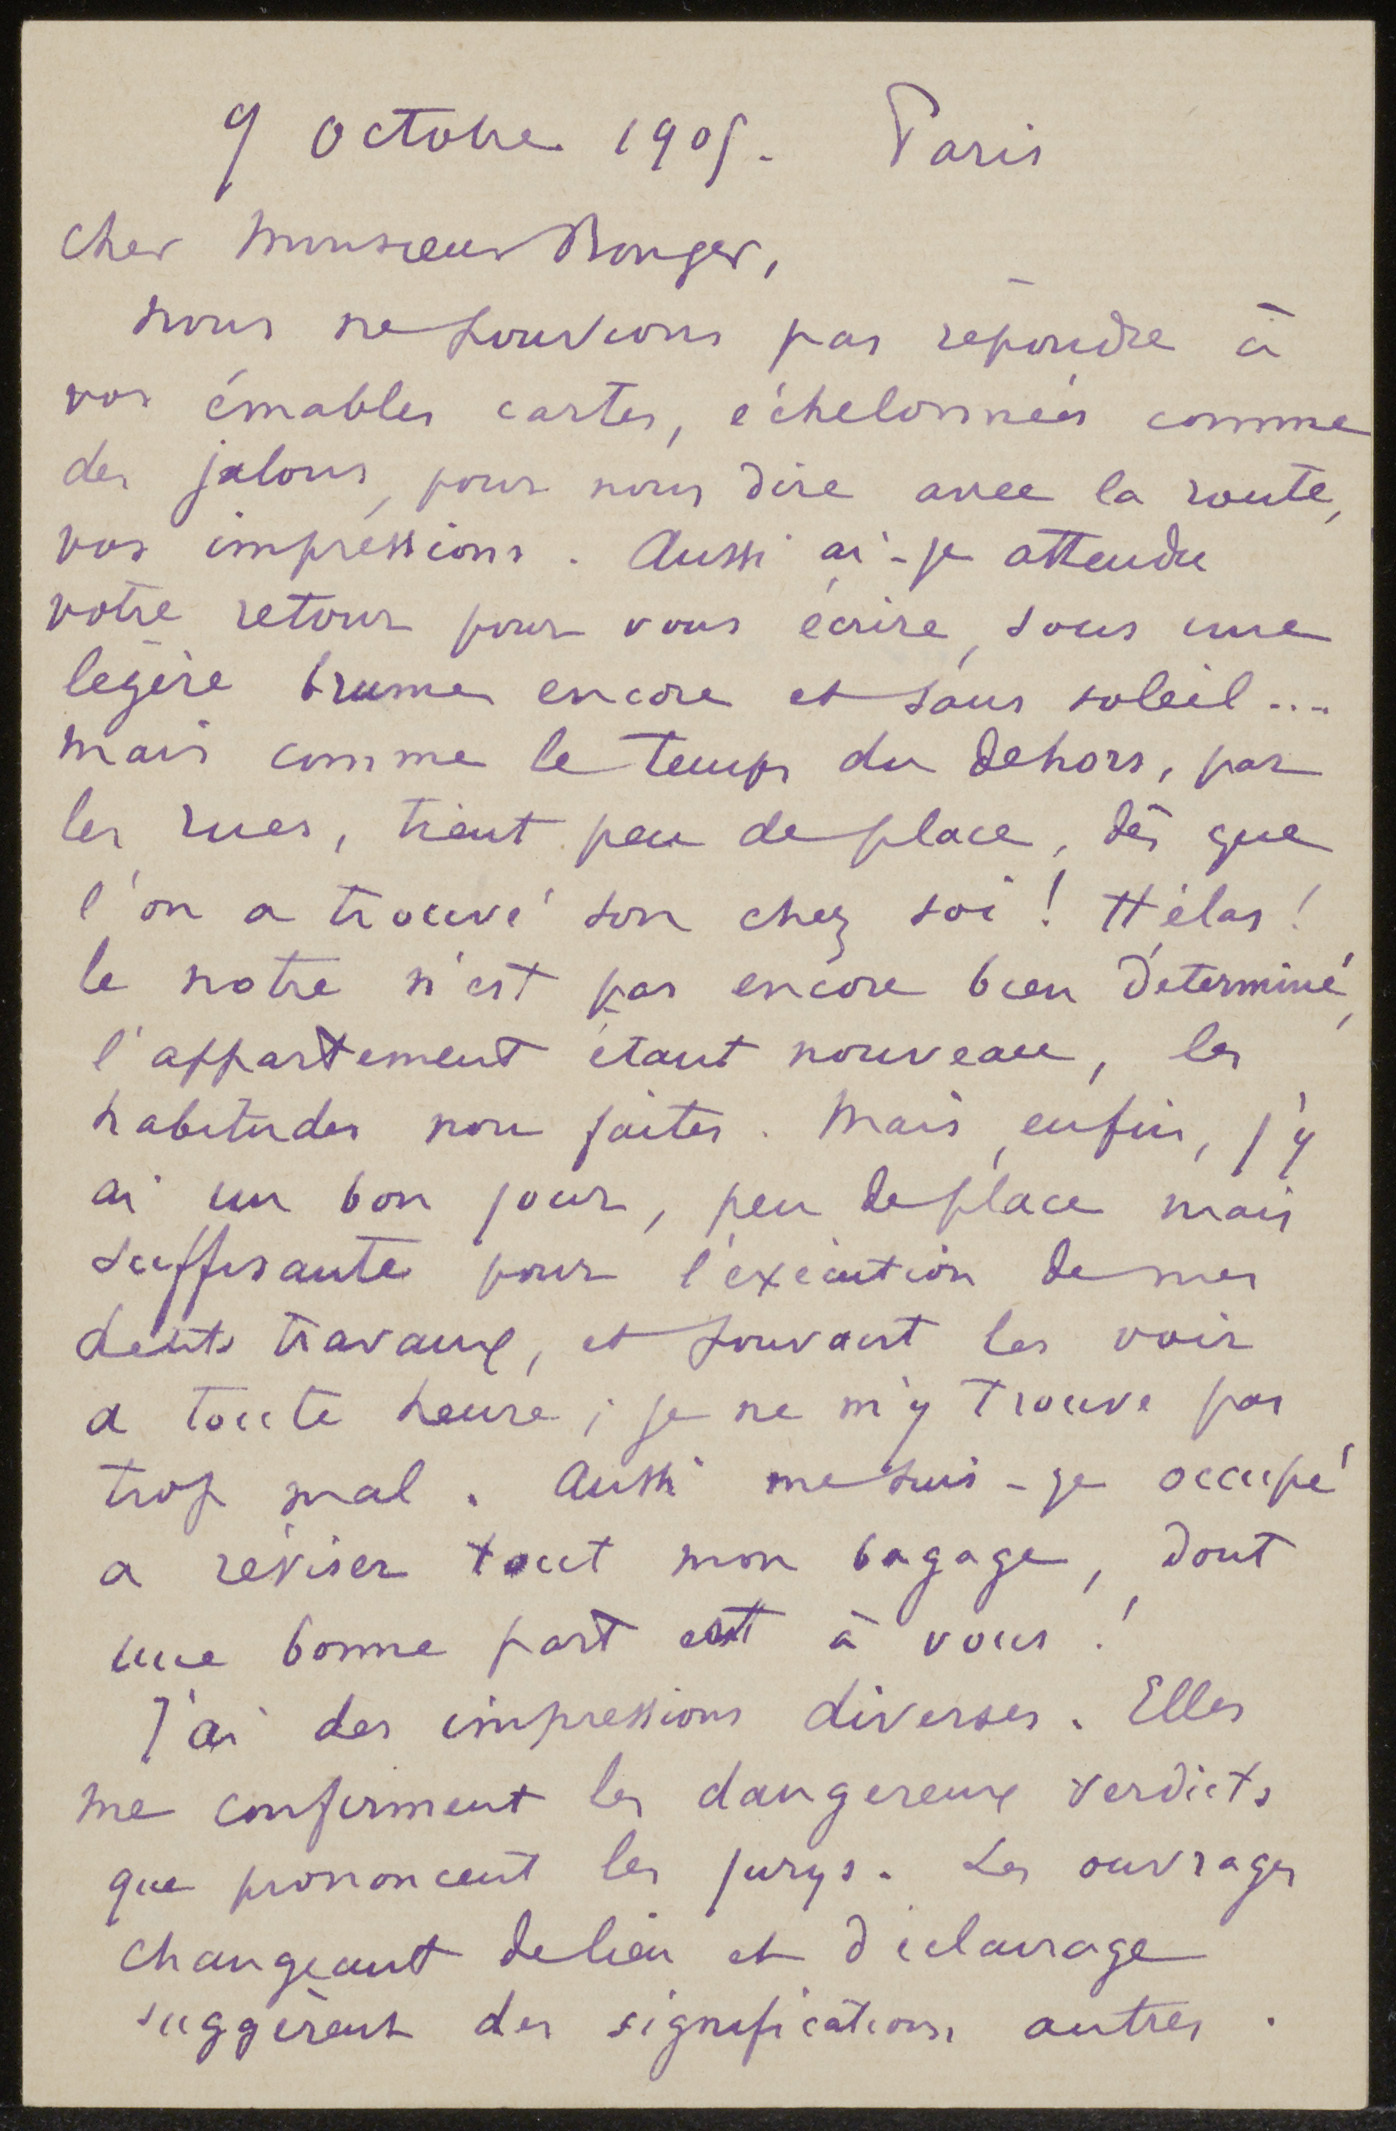 9 octobre 1905. Paris
Cher Monsieur Bonger,
nous ne pouvions pas répondre à
vos émables cartes, échelonnées comme
des jalons, pour nous dire avec la route,
vos impréssions. Aussi ai-je attendu
votre retour pour vous écrire, sous une
légère brume encore et sans soleil....
mais comme le temps du dehors, par
les rues, tient peu de place, dès que
l'on a trouvé son chez soi! Hélas!
le notre n'est pas encore bien déterminé,
l'appartement étant nouveau, les
habitudes non faites. Mais, enfin, j'y
ai un bon jour, peu de place mais
suffisante pour l'exécution de mes
petits travaux, et pouvant les voir
a toute heure; je ne m'y trouve pas
trop mal. Aussi me suis-je occupé
a réviser tout mon bagage, dont
une bonne part est à vous!
J'ai des impressions diverses. Elles
me confirment les dangereux verdicts
que prononcent les jurys. Les ouvrages
changeant de lieu et d'éclairage
suggèrent des significations autres.